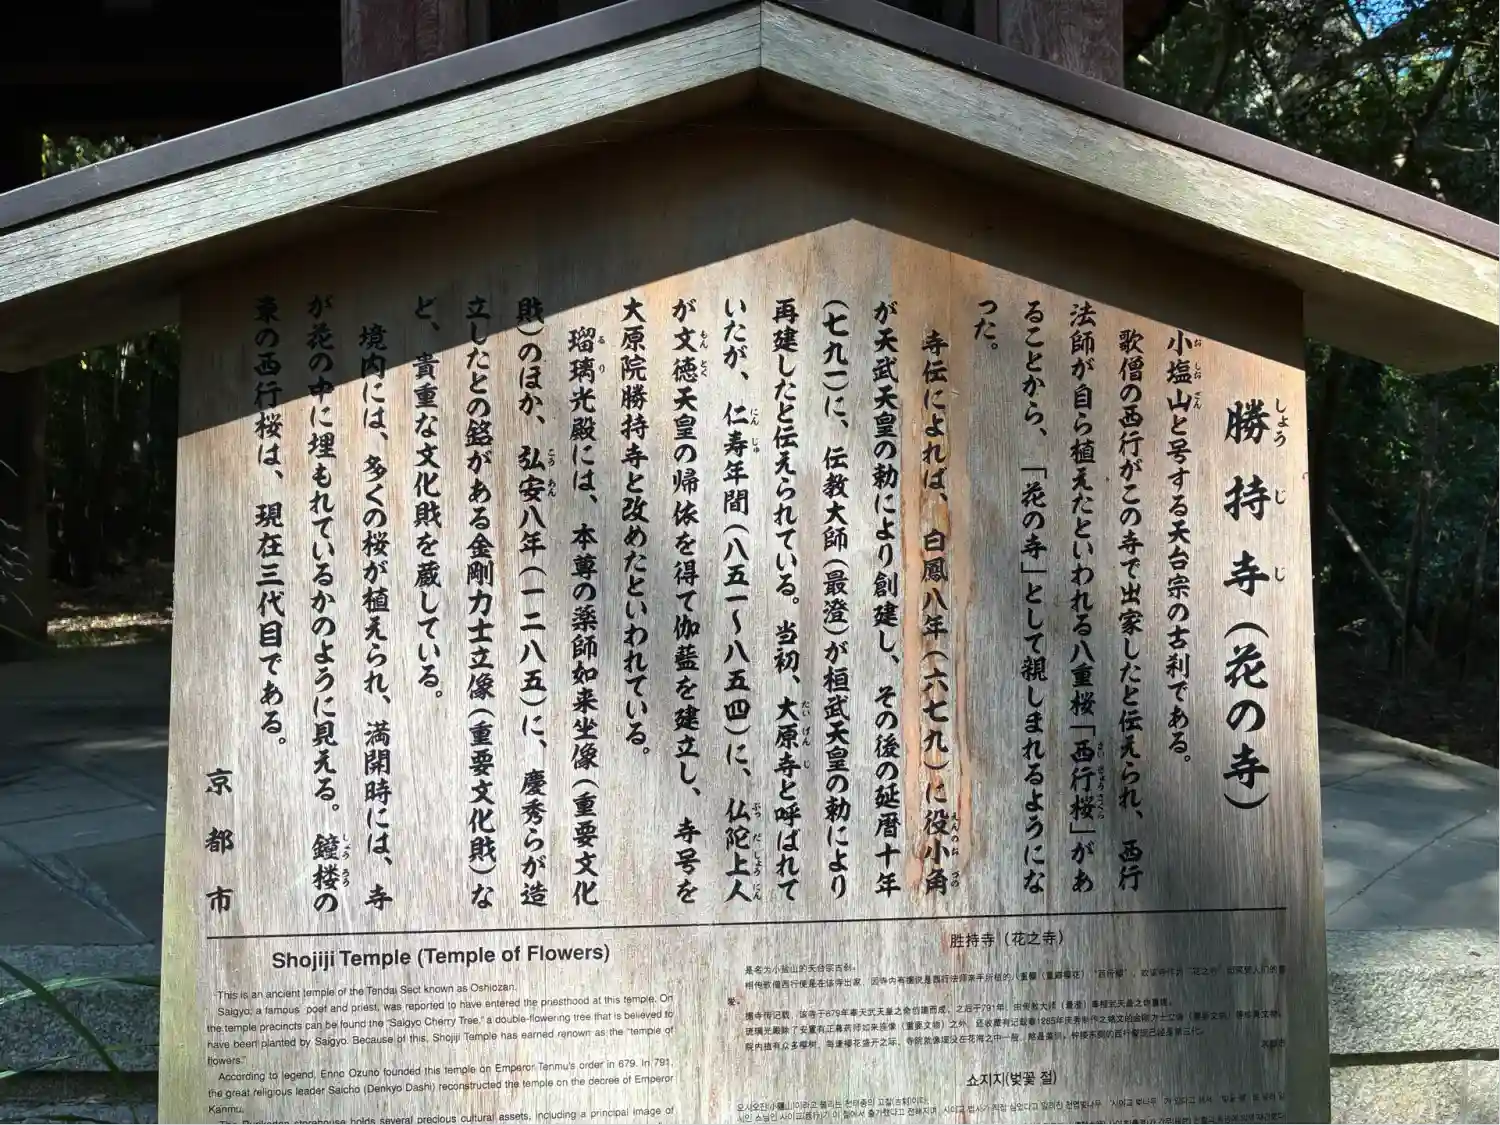 勝持寺(花の寺)
小塩山と号する天台宗の古刹である。
歌僧の西行がこの寺で出家したと伝えられ、西行
法師が自ら植えたといわれる八重桜「西行桜」があ
ることから、「花の寺」として親しまれるようにな
った。
寺伝によれば、白鳳八年(六七九)に役小角
が天武天皇の勅により創建し、その後の延暦十年
(七九一)に、伝教大師(最澄)が桓武天皇の勅により
再建したと伝えられている。当初、大原寺と呼ばれて
いたが、仁寿年間(八五一～八五四)に、仏陀上人
が文徳天皇の帰依を得て伽藍を建立し、寺号を
大原院勝持寺と改めたといわれている。
瑠璃光殿には、本尊の薬師如来坐像(重要文化
財)のほか、弘安八年(一二八五)に、慶秀らが造
立したとの銘がある金剛力士立像(重要文化財)な
ど、貴重な文化財を蔵している。
境内には、多くの桜が植えられ、満開時には、寺
が花の中に埋もれているかのように見える。鐘楼の
東の西行桜は、現在三代目である。
京都市
Shojiji Temple (Temple of Flowers)
This is an ancient temple of the Tendai Sect known as Oshiozan.
Saigyo, a famous poet and priest, was reported to have entered the priesthood at this temple. On
the temple precincts can be found the "Saigyo Cherry Tree," a double-flowering tree that is believed to
have been planted by Saigyo. Because of this, Shojiji Temple has earned renown as the "temple of
flowers."
According to legend, Enno Ozuno founded this temple on Emperor Tenmu's order in 679. In 791,
the great religious leader Saicho (Denkyo Dashi) reconstructed the temple on the decree of Emperor
Kanmu.
storehouse holds several precious cultural assets, including a principal image of
胜持寺（花之寺）
是名为小盐山的天台宗古刹。
쇼지지(벚꽃 절)